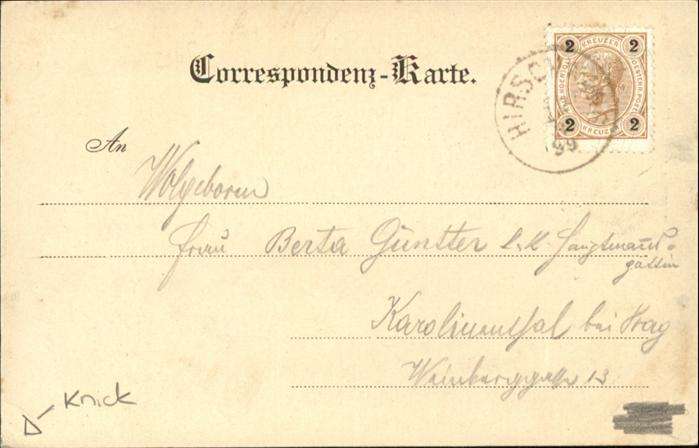 Correspondenz-Karte.
2 KREUZER 2
2 KREUZER 2
HIRSCH
99
An
Wolgeborn
Frau Berta Güntter k.k. Hauptmanns-
gattin
Karolinenthal bei Prag
Weinberggasse 13
Knick